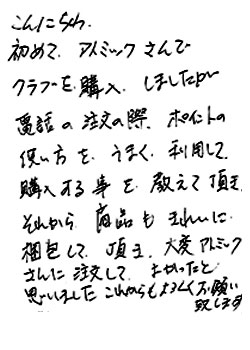 こんにちわ.
初めて、アトミック さんで
クラブを 購入、しましたが
電話の 注文の際、ポイントの
使い方を、うまく、利用して、
購入する事を、教えて頂き、
それから、商品も きれいに
梱包して、頂き、大変アトミック
さんに 注文して、よかったと
思いました これからもよろしくお願い
致します